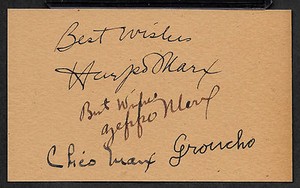 Best Wishes
Harpo Marx
Best Wishes
Zeppo Marx
Chico Marx Groucho